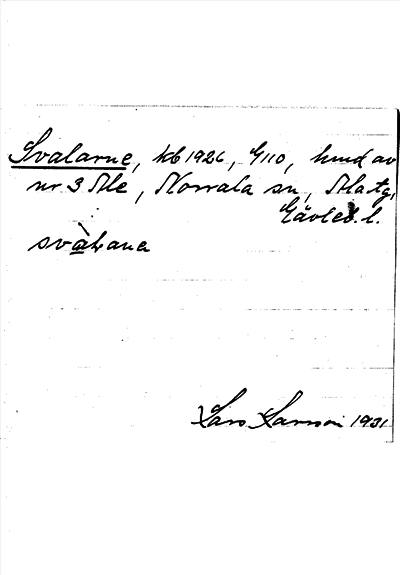 Svalarne, kb 1926, G110, hmd av
nr 3 Ale, Norrala sn, Ala tg,
Gävleb. l.
svàlana
Lars Larson 1931